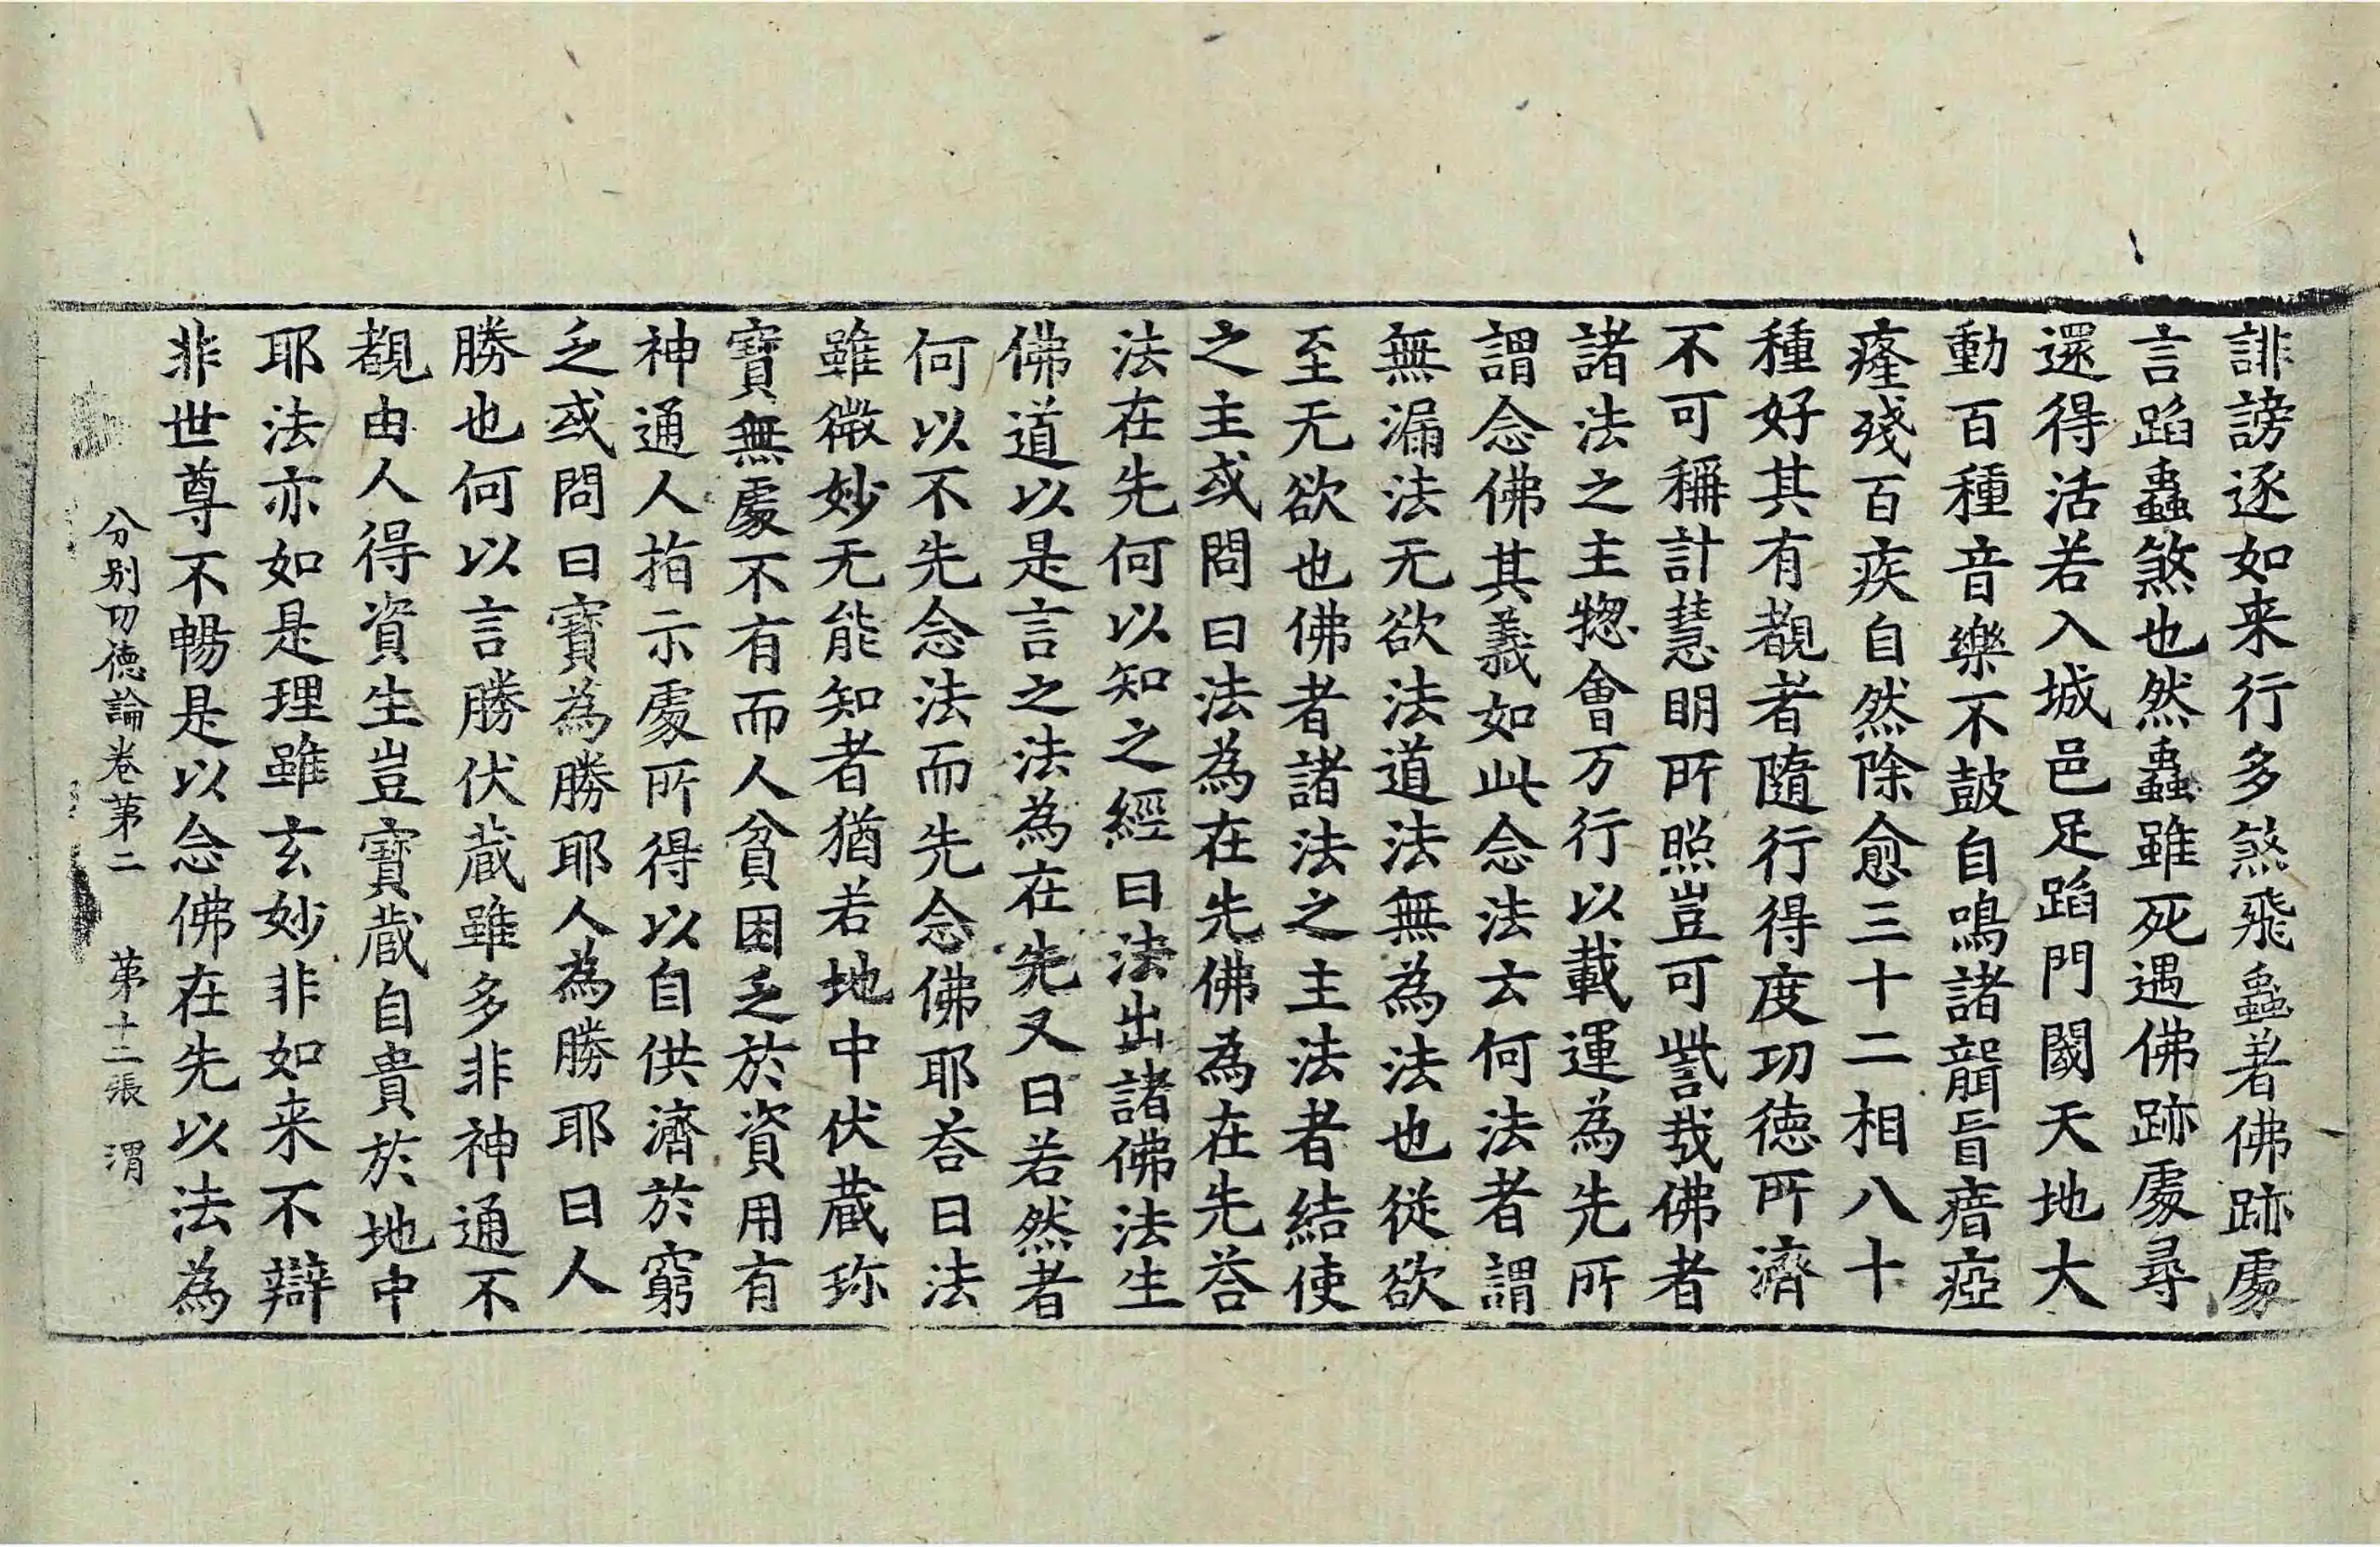 誹謗逐如来行多煞飛蟲著佛跡處
言蹈蟲煞也然蟲雖死遇佛跡處尋
還得活若入城邑足蹈門閫天地大
動百種音樂不鼓自鳴諸聾盲瘖瘂
癃殘百疾自然除愈三十二相八十
種好其有覩者隨行得度功徳所濟
不可稱計慧明所照豈可訾㦲佛者
諸法之主揔會万行以載運為先所
謂念佛其義如此念法云何法者謂
無漏法无欲法道法無為法也従欲
至无欲也佛者諸法之主法者結使
之主或問曰法為在先佛為在先荅
法在先何以知之經曰法出諸佛法生
佛道以是言之法為在先又曰若然者
何以不先念法而先念佛耶荅曰法
雖微妙无能知者猶若地中伏蔵珎
寳無處不有而人貧困乏於資用有
神通人指示處所得以自供濟於窮
乏或問曰寳為勝耶人為勝耶曰人
勝也何以言勝伏蔵雖多非神通不
覩由人得資生豈寳蔵自貴於地中
耶法亦如是理雖玄妙非如来不辯
非世尊不暢是以念佛在先以法為
分別功徳論卷第二　第十二張　渭